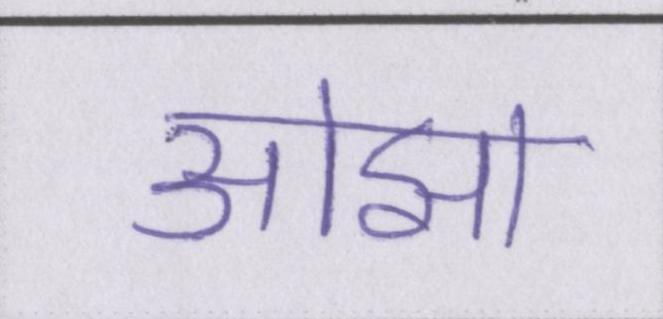 ओझा